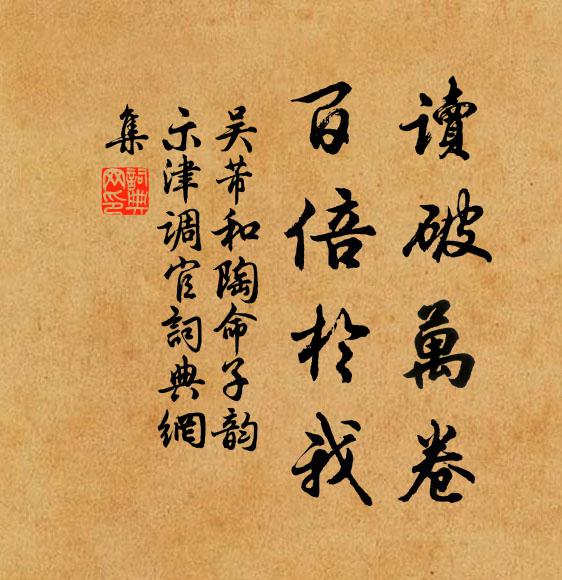 讀破萬卷
百倍於我
吴芾和陶命子韵
示津调官詞典網
集
詞典網印